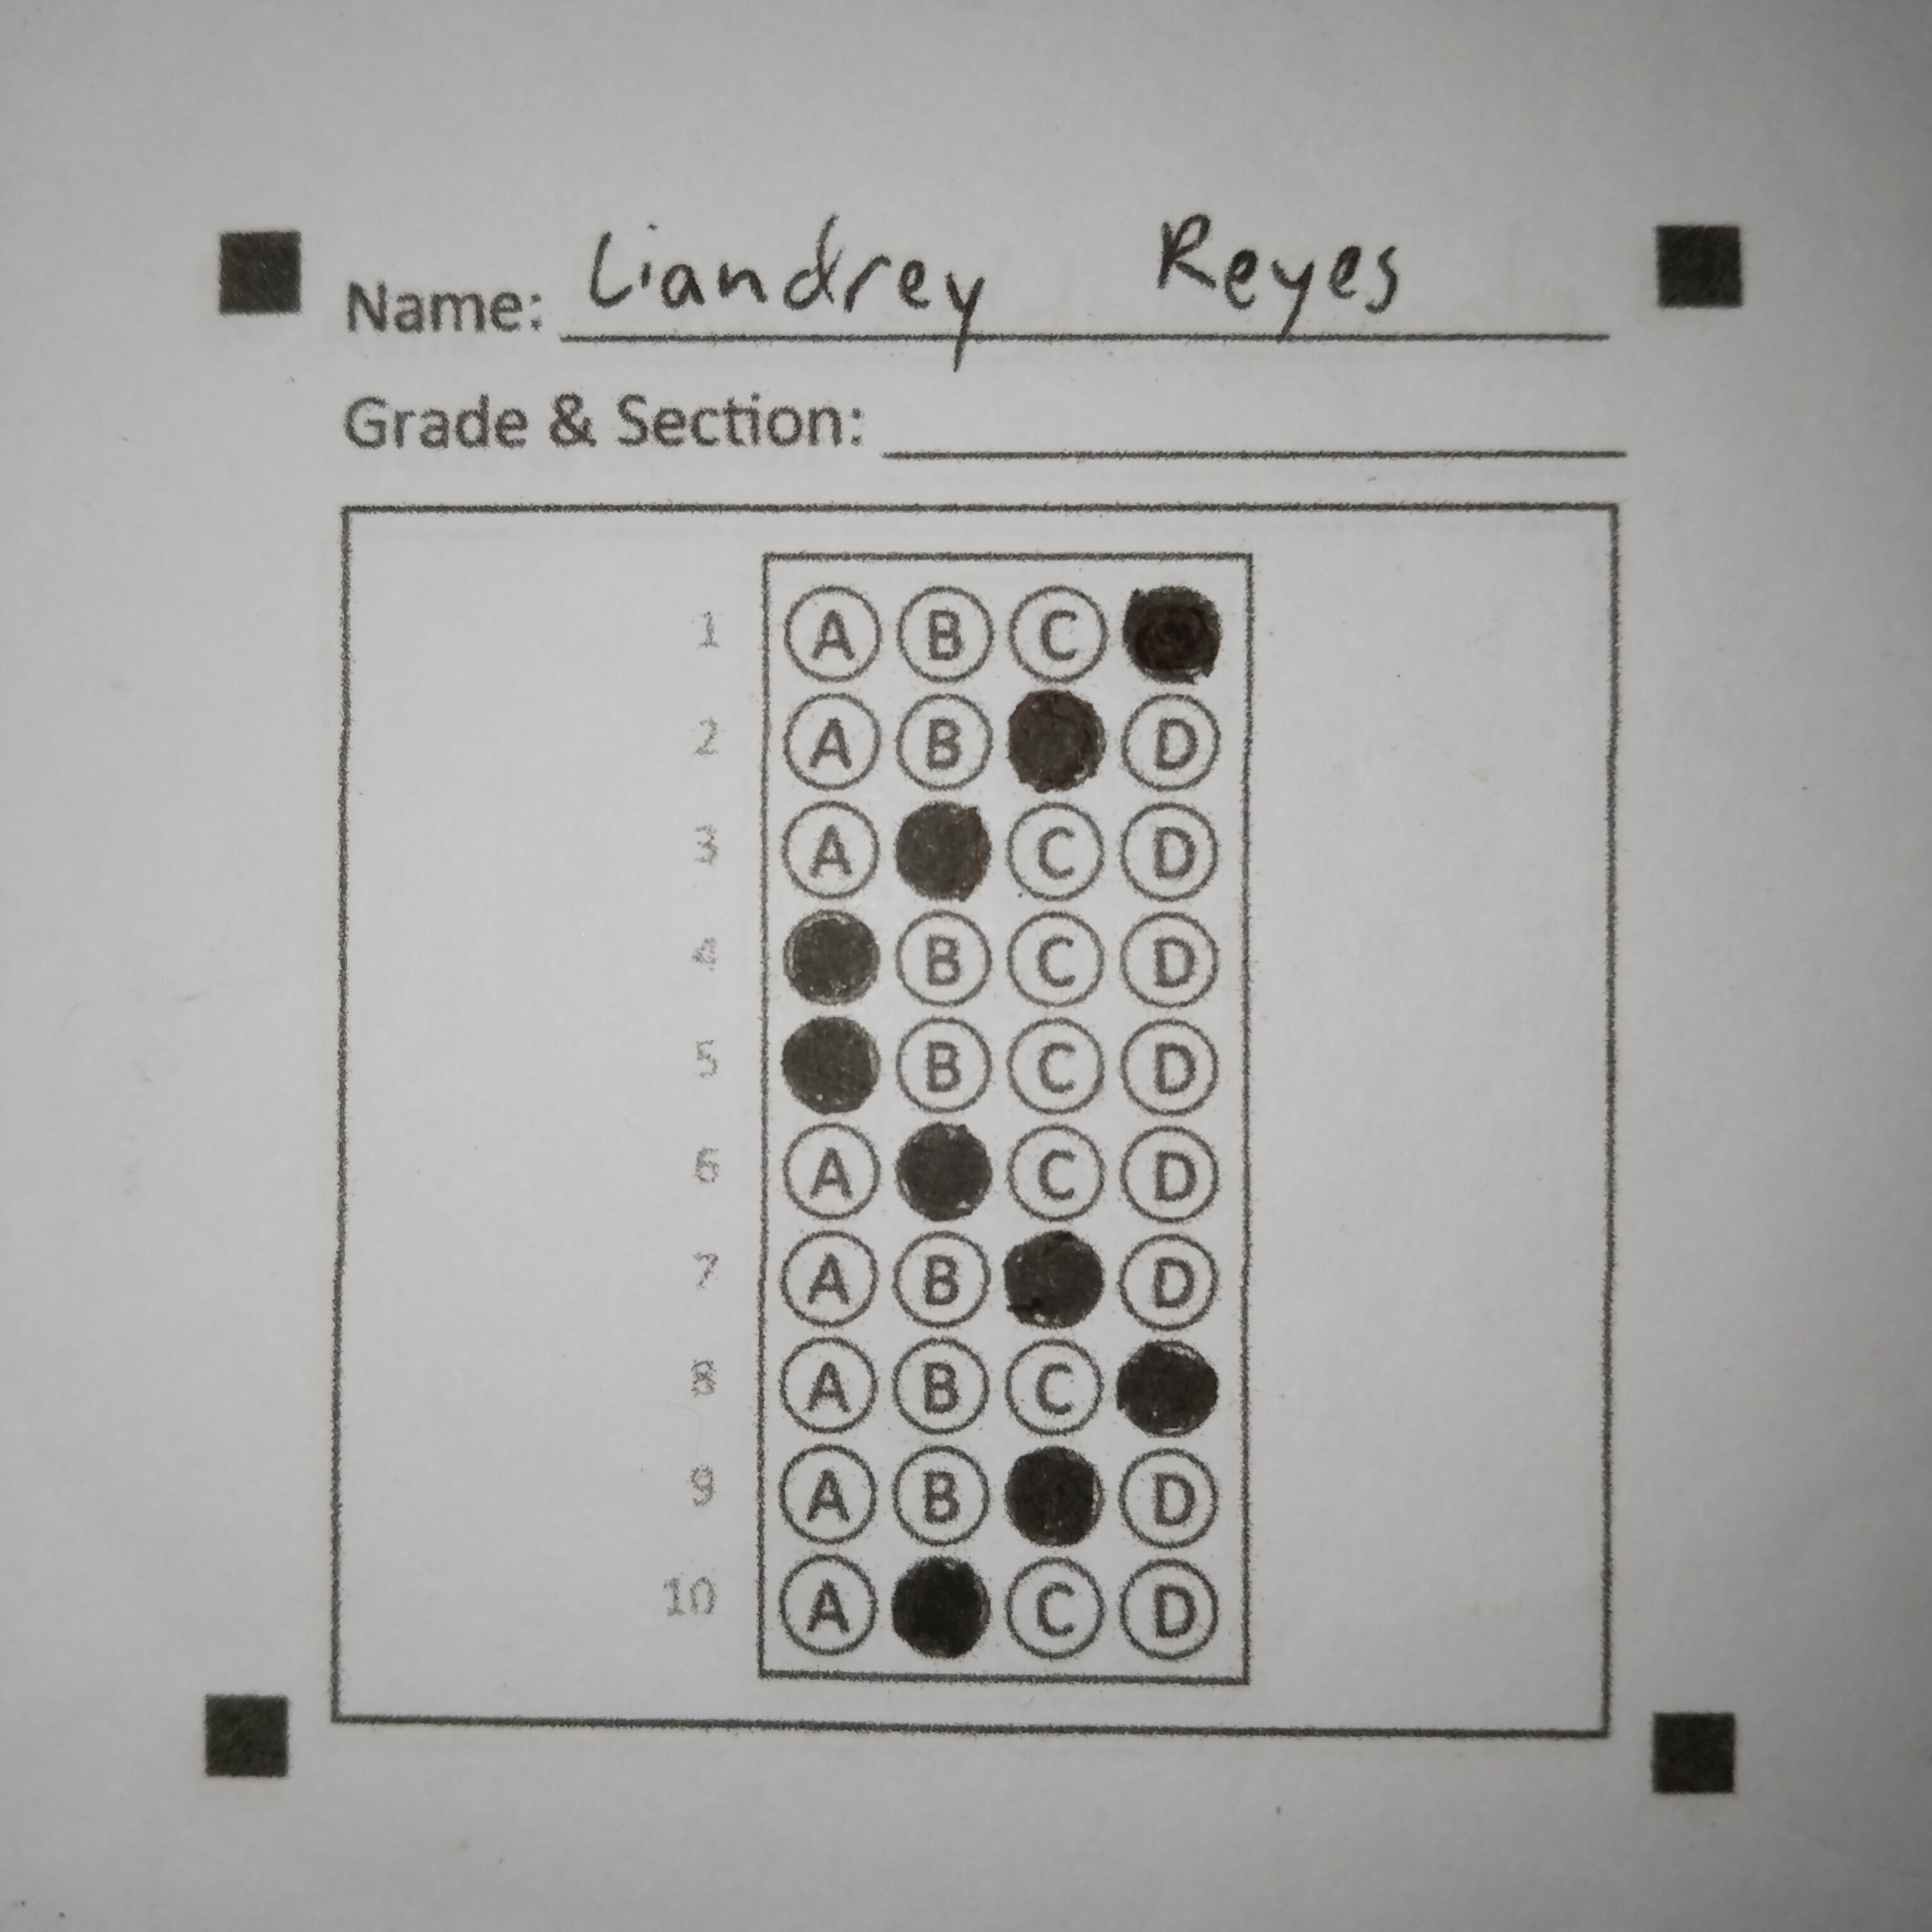 Name: Liandrey Reyes
Grade & Section:
1 A B C
2 A B D
3 A C D
4 B C D
5 B C D
6 A C D
7 A B D
8 A B C
9 A B D
10 A C D